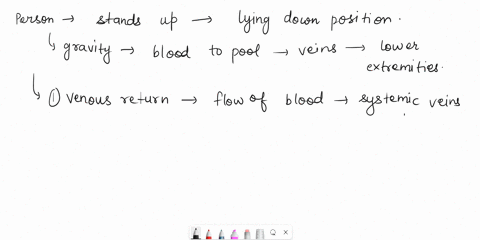 Person → stands up → lying down position.
↳ gravity → blood to pool → veins → lower
extremities.
↳ ① venous return → flow of blood → systemic veins